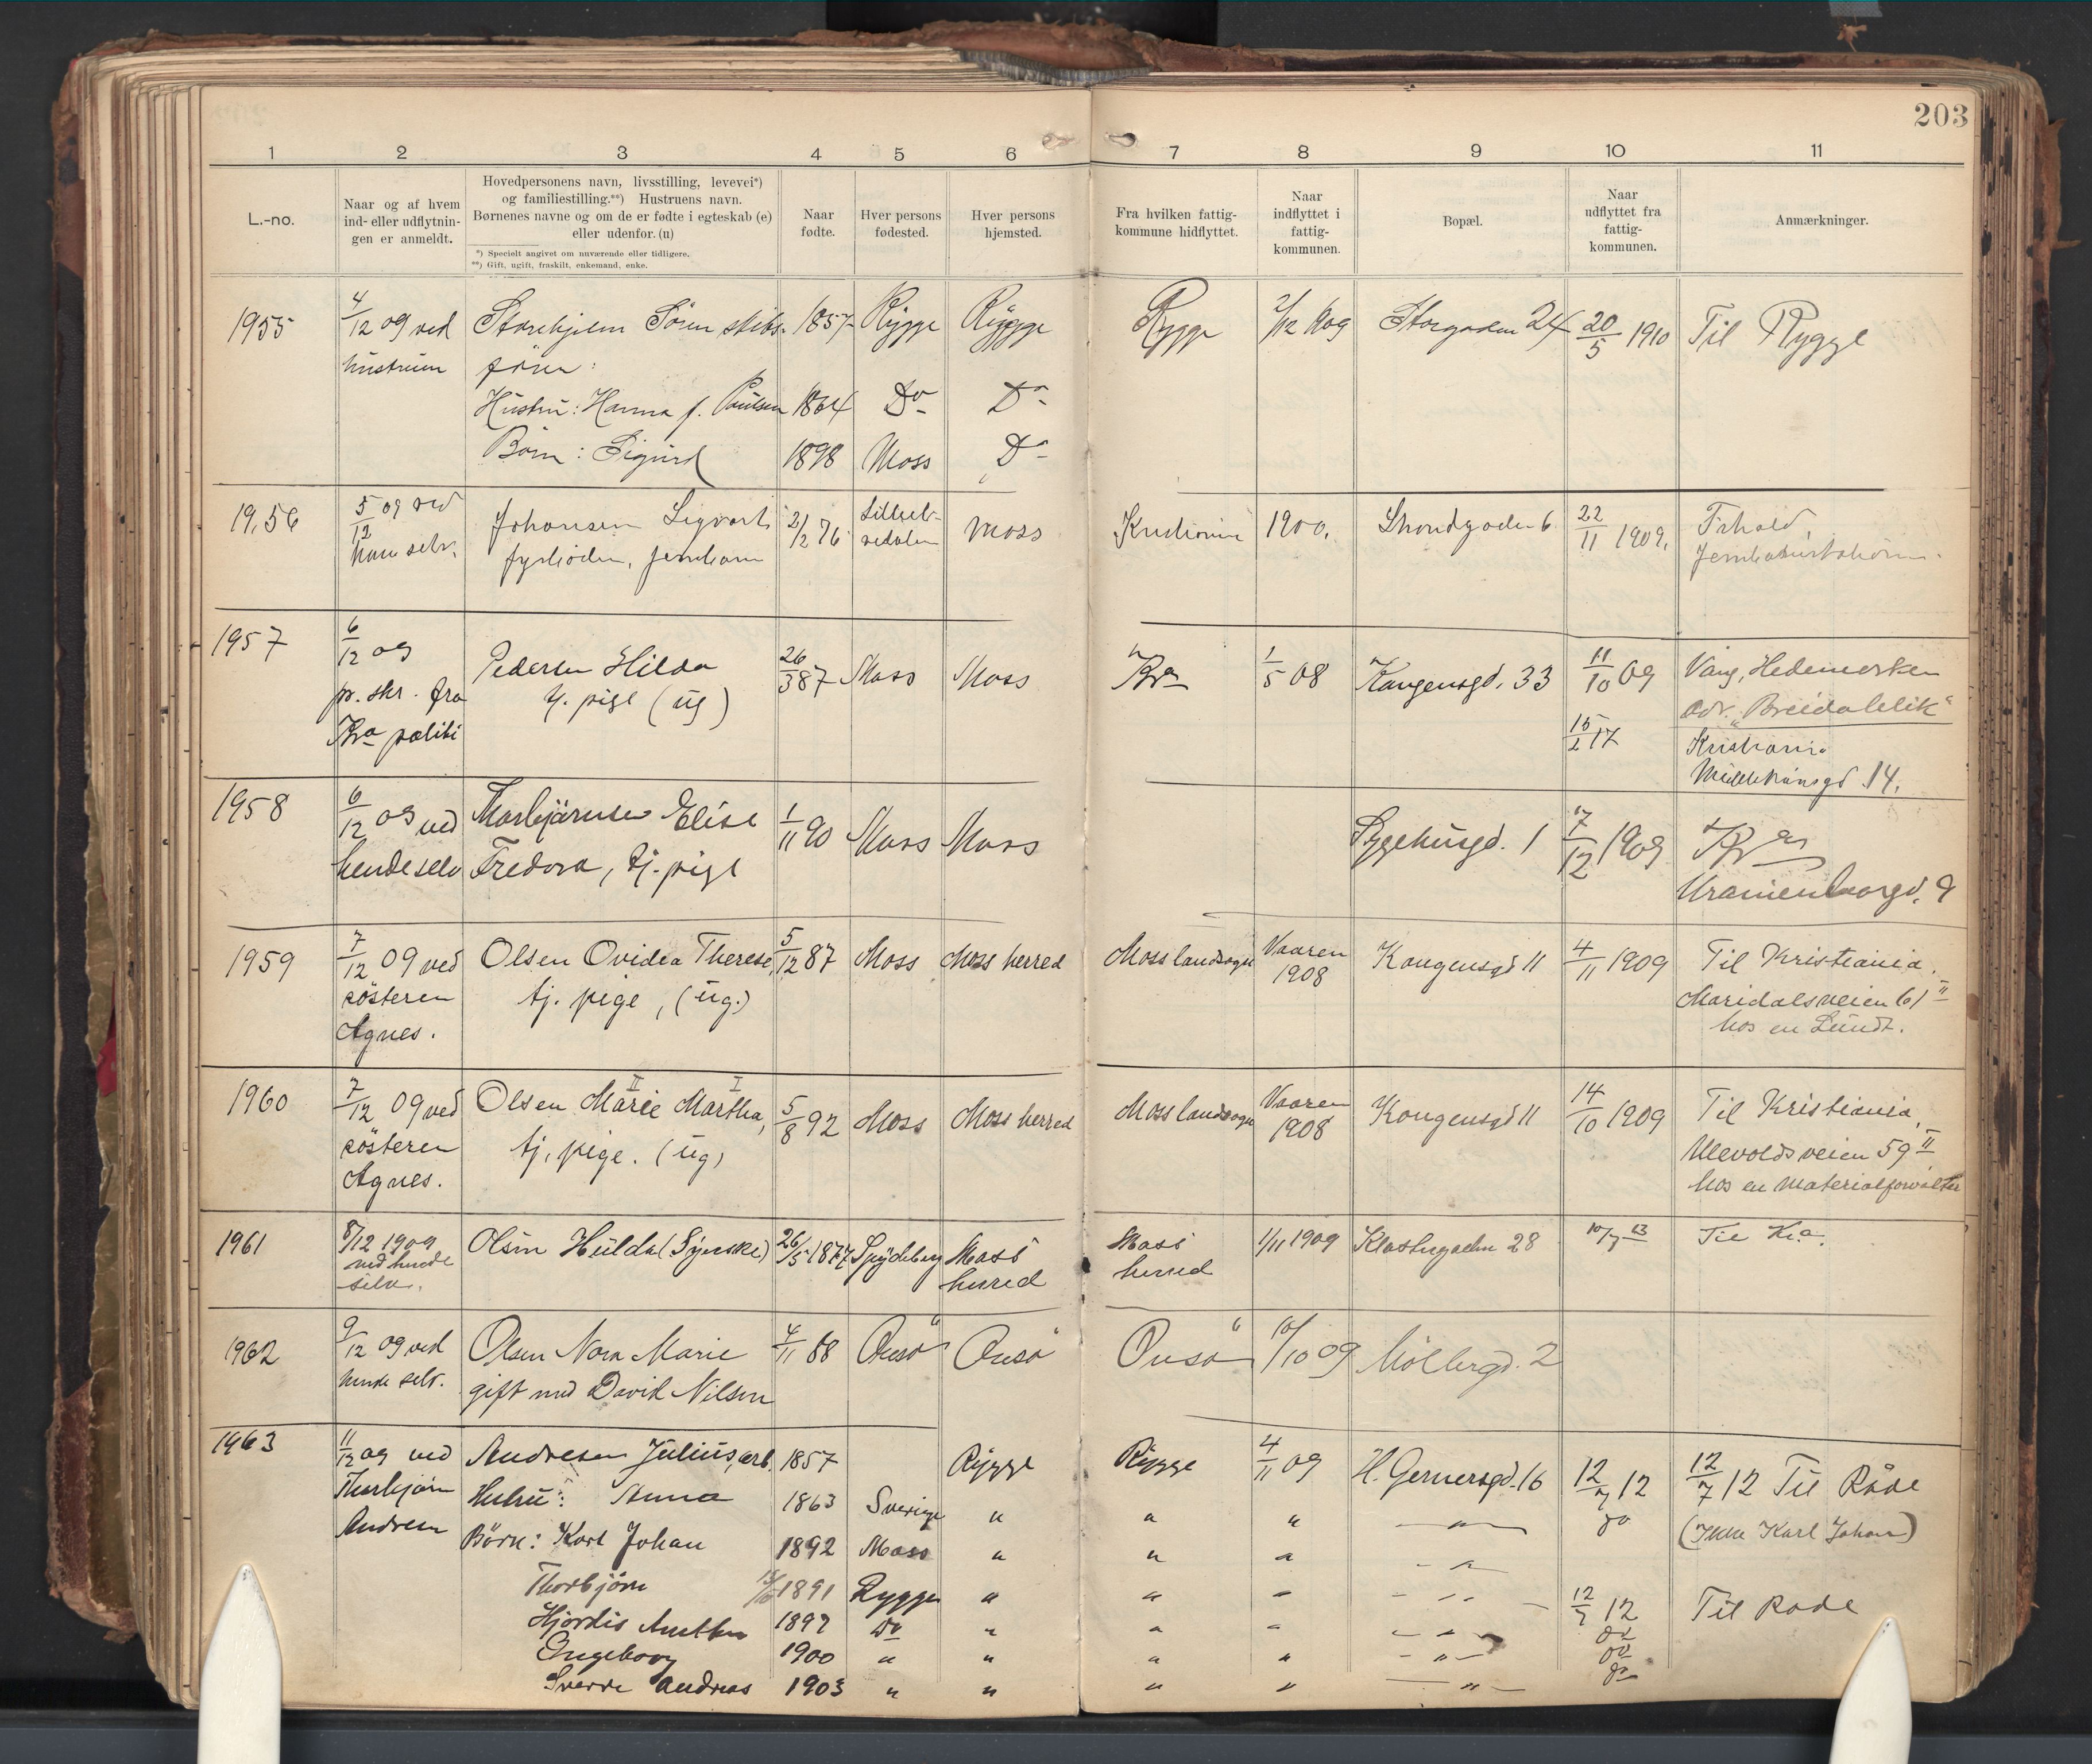 203
1 2 3 4 5 6 7 8 9 10 11
L.-no.
Naar og af hvem
ind- eller udflytnin-
gen er anmeldt.
Hovedpersonens navn, livsstilling, levevei*)
og familiestilling.**) Hustruens navn.
Børnenes navne og om de er fødte i egteskab (e)
eller udenfor. (u)
*) Specielt angivet om nuværende eller tidligere.
**) Gift, ugift, fraskilt, enkemand, enke.
Naar
fødte.
Hver persons
fødested.
Hver persons
hjemsted.
Fra hvilken fattig-
kommune hidflyttet.
Naar
indflyttet i
fattig-
kommunen.
Bopæl.
Naar
udflyttet fra
fattig-
kommunen.
Anmærkninger.
1955 4/12 09 ved Sören skibs- 1857 Rygge Rygge Rygge 2/12 1909 Storgaden 24 20/5 1910 Til Rygge
hustruen förer:
Hustru: Hanna f. Paulsen 1864 Do Do
Börn: Sigurd 1898 Moss Do
1956 5/12 09 ved Johansen Sigvart 2/12 76 Moss Kristiania 1900. Strandgaden 6 22/11 1909.
ham selv. fyrböder,
1957 6/12 09 Pedersen Hilda 26/3 87 Moss Moss Kra 1/5 08 Kongensgd. 33 11/10 09 Vang, Hedemarken
pr. skr. fra tj. pige (ug) adr. "Breidablik"
Kra politi 15/2 17 Kristiania
14.
1958 6/12 09 ved Thorbjörnsen Elise 1/11 90 Moss Moss Sygehusgd. 1 7/12 1909 Kra
hende selv Fredova, tj. pige Uranienborgd. 9
1959 7/12 09 ved Olsen Ovidia Therese, 5/12 87 Moss Moss herred Moss landsogn Vaaren 1908 Kongensgd 11 4/11 1909 Til Kristiania.
søsteren tj. pige, (ug.) Maridalsveien 61 II
Agnes. hos en Lundt.
1960 7/12 09 ved Olsen Marie II Martha I, 5/8 92 Moss Moss herred Moss landsogn Vaaren 1908 Kongensgd 11 14/10 1909 Til Kristiania,
søsteren tj. pige. (ug) Ullevoldsveien 59 II
Agnes. hos en materialforvalter
1961 8/12 1909 Olsen Hulda (Synske) 26/5 1877 Spydeberg Moss Moss 1/11 1909 Klostergaden 28 10/7 13 Til Kra.
ved hende herred herred
selv.
1962 9/12 09 ved Olsen Nora Marie 4/11 88 Onsö Onsö Onsö 10/10 09 Möllergd. 2
hende selv. gift med David Nilsen
1963 11/12 09 ved Andresen Julius, arb. 1857 Rygge Rygge 4/11 09 H. Gernersgd. 16 12/7 12 12/7 12 Til Råde
Thorbjörn Hustru: Anna 1863 Sverige " " " " do (Ikke Karl Johan)
Andresen Börn: Karl Johan 1892 Moss " " " "
Thorbjörn 15/10 1891 Rygge " " " " 12/7 12 Til Råde
Hjördis 1897 Do " " " " do
Engeborg 1900 " " " " " do
Sverre Andreas 1903 " " " " " do